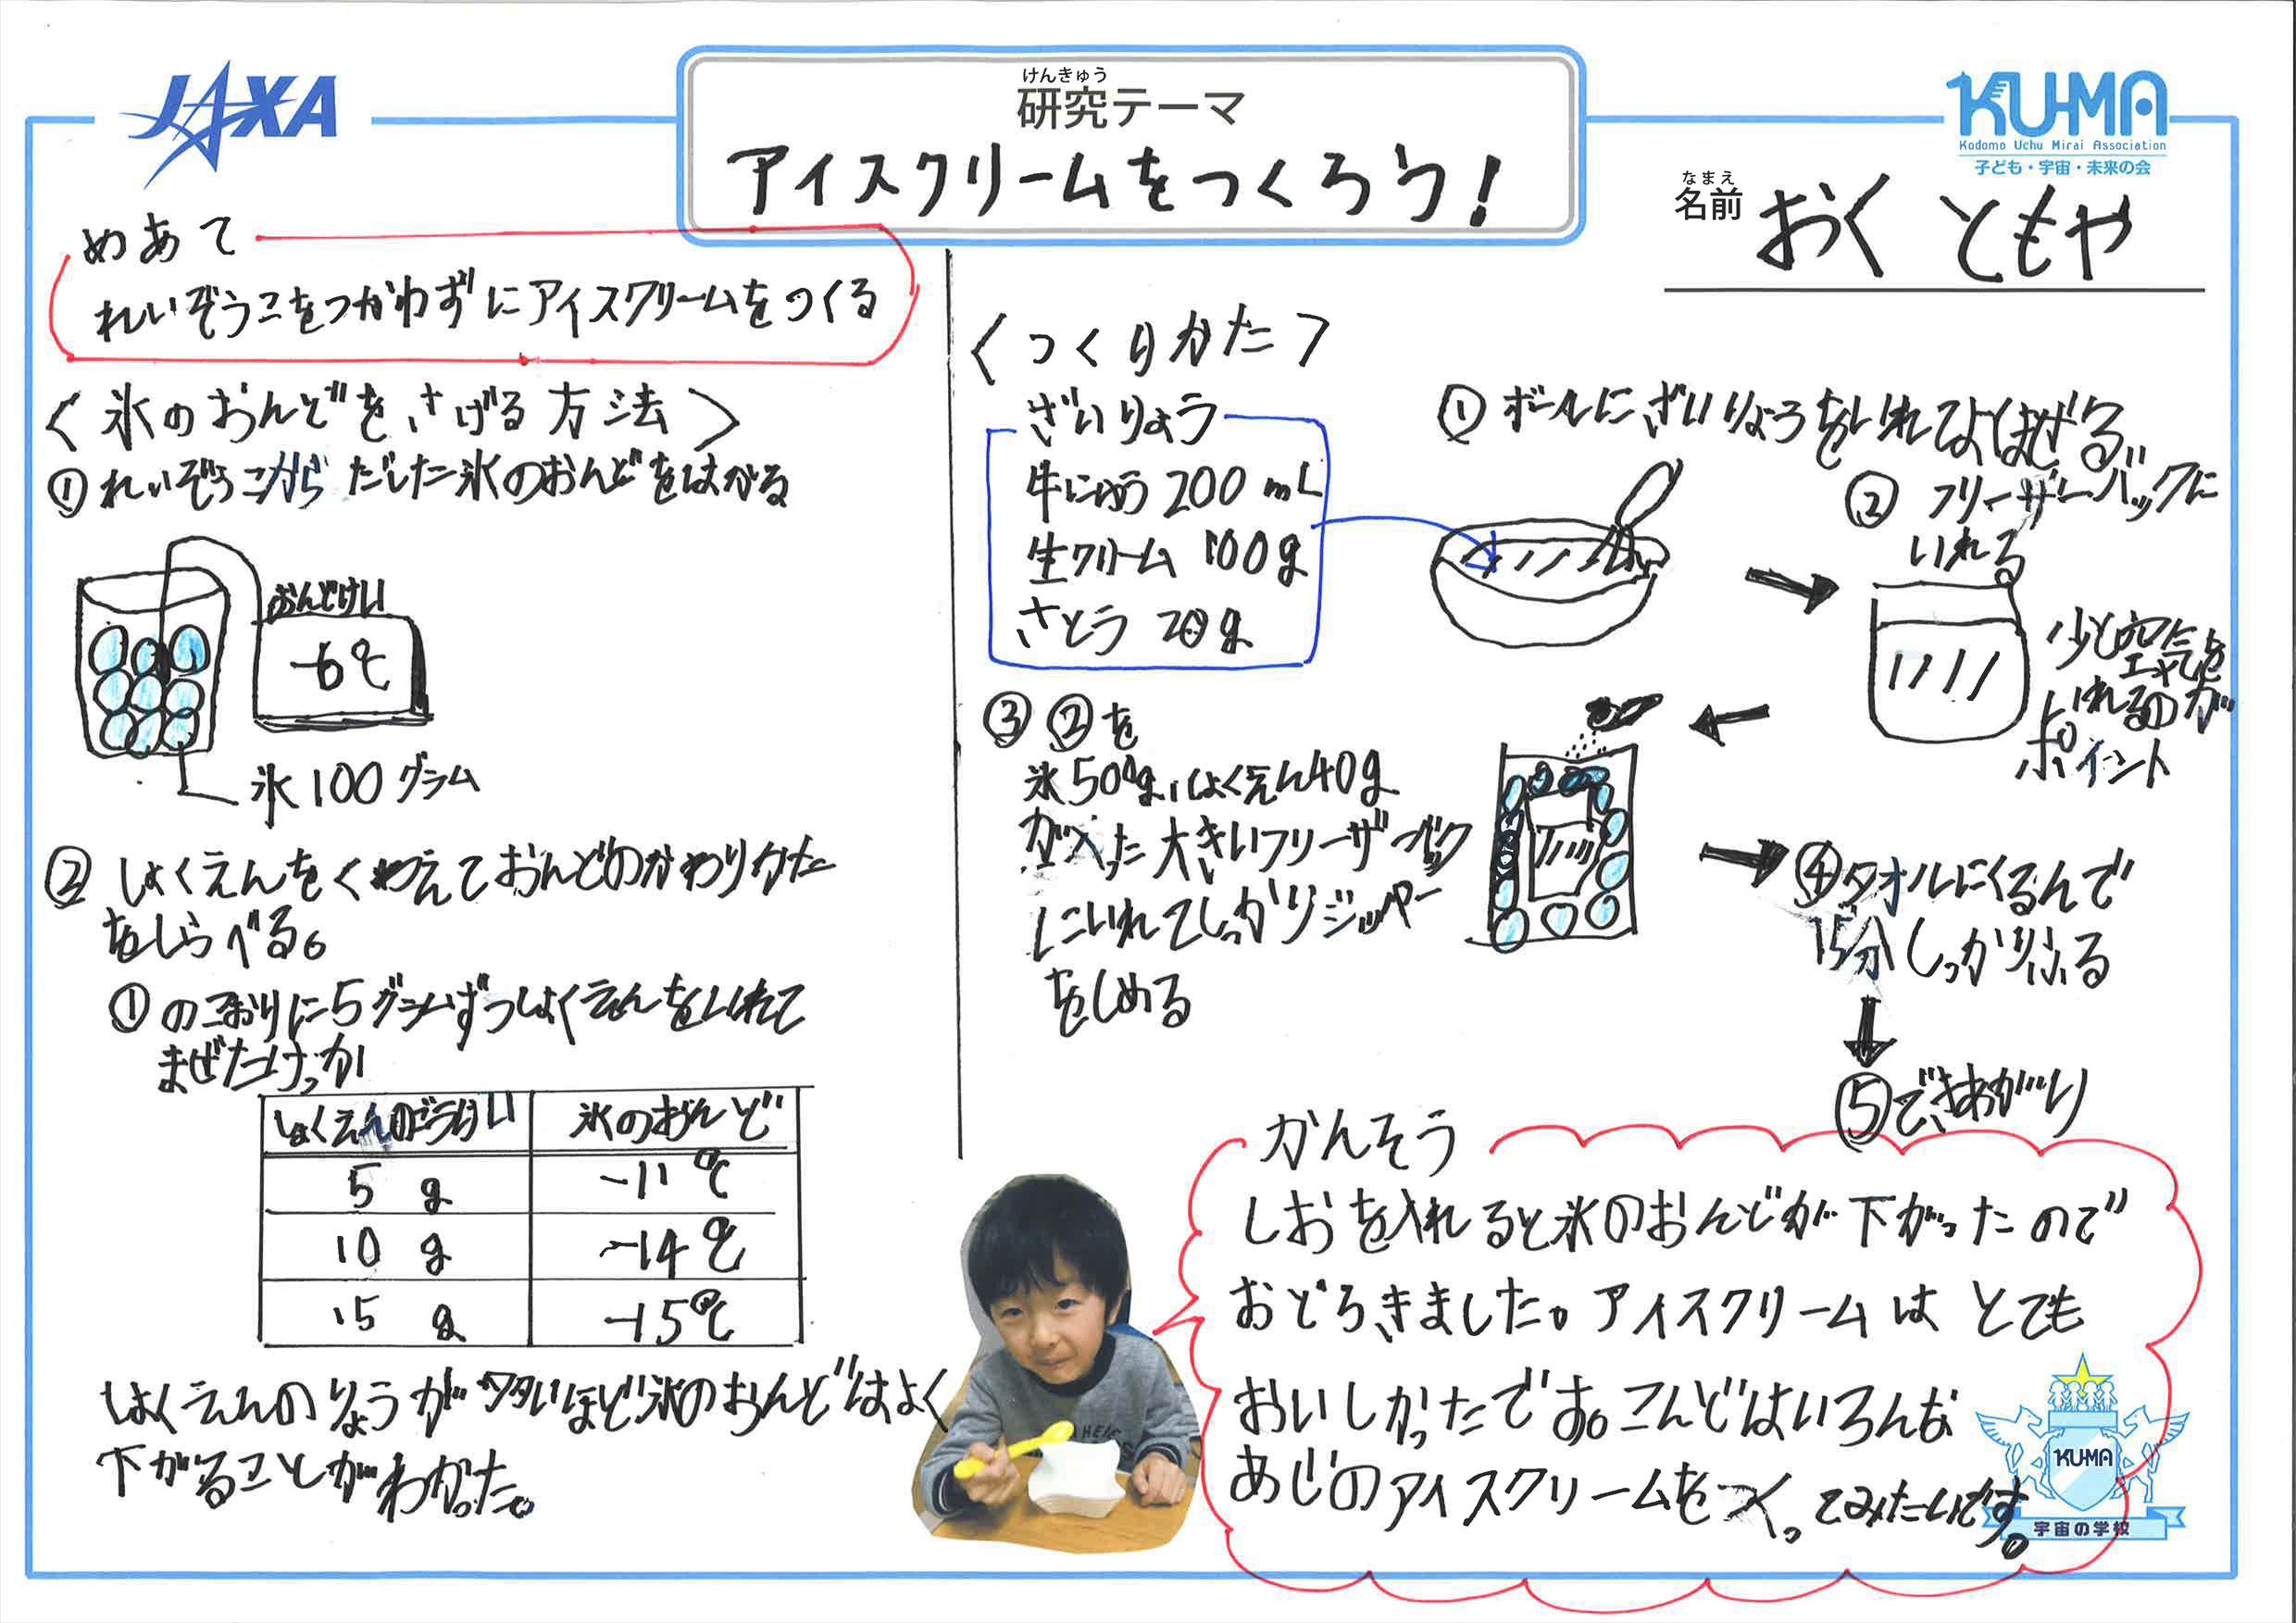 JAXA
けんきゅう
研究テーマ
アイスクリームをつくろう!
KU-MA
Kodomo Uchu Mirai Association
子ども・宇宙・未来の会
なまえ
名前 おく ともや
めあて
れいぞうこをつかわずにアイスクリームをつくる
<氷のおんどをさげる方法>
①れいぞうこからだした氷のおんどをはかる
おんどけい
-6℃
氷100グラム
②しょくえんをくわえておんどのかわりかた
をしらべる。
①のこおりに5グラムずつしょくえんをいれて
まぜたけっか
しょくえんのごうけい 氷のおんど
5g -11℃
10g -14℃
15g -15℃
しょくえんのりょうが多いほど氷のおんどはよく
下がることがわかった。
<つくりかた>
ざいりょう
牛にゅう 200mL
生クリーム 100g
さとう 20g
①ボールにざいりょうをいれてよくまぜる
②フリーザーバックに
いれる
少し空気を
いれるのが
ポイント
③②を
氷500g、しょくえん40g
が入った大きいフリーザーバック
にいれてしっかりジッパー
をしめる
④タオルにくるんで
15分しっかりふる
⑤できあがり
かんそう
しおを入れると氷のおんどが下がったので
おどろきました。アイスクリームはとても
おいしかったです。こんどはいろんな
あじのアイスクリームをつくってみたいです。
KU-MA
宇宙の学校